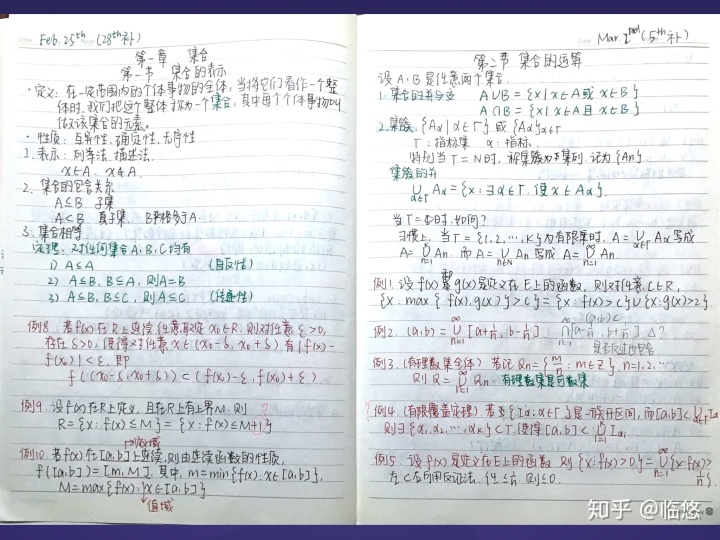 Feb. 25th (28th补)
第一章 集合
第一节 集合的表示
·定义：在一定范围内的个体事物的全体，当将它们看作一个整
体时，我们把这个整体称为一个集合，其中每个个体事物叫
做该集合的元素。
·性质：互异性，确定性，无序性
1. 表示：列举法，描述法.
x∈A. x∉A.
2. 集合的包含关系
A⊆B 子集
A⊂B 真子集
3. 集合相等
定理：对任何集合A,B,C均有
1) A⊆A (自反性)
2) A⊆B, B⊆A, 则A=B
3) A⊆B, B⊆C, 则A⊆C (传递性)
例8. 若f(x)在R上连续，任意取定x₀∈R, 则对任意ε>0,
存在δ>0, 使得对任意x∈(x₀-δ, x₀+δ)有|f(x)-
f(x₀)|<ε, 即
f((x₀-δ, x₀+δ))⊂(f(x₀)-ε, f(x₀)+ε)
例9. 设f(x)在R上定义，且在R上有上界M. 则
R={x: f(x)≤M}={x: f(x)≤M+1}
例10. 若f(x)在[a,b]上连续，则由连续函数的性质，
f([a,b])=[m,M]. 其中, m=min{f(x): x∈[a,b]},
M=max{f(x): x∈[a,b]}
值域
Mar. 2nd (5th补)
第二节 集合的运算
设A,B是任意两个集合
1. 集合的并与交 A∪B={x|x∈A或x∈B}
A∩B={x|x∈A且x∈B}
2. 集族 {Aα|α∈Γ}或{Aα}α∈Γ
Γ：指标集 α：指标.
特别当Γ=N时，称集族为集列，记为{An}
集族的并
∪α∈Γ Aα={x: ∃α∈Γ, 使x∈Aα}.
当Γ=Φ时，如何？
习惯上，当Γ={1,2,…,k}为有限集时, A=∪α∈Γ Aα写成
A=∪n=1 An. 而A=∪n∈N An写成A=∪n=1^∞ An.
例1. 设f(x)和g(x)是定义在E上的函数，则对任意C∈R,
{x: max{f(x),g(x)}>c}={x: f(x)>c}∪{x: g(x)>2}
例2. (a,b)=∪n=1^∞[a+1/n, b-1/n] ∩n=1^∞(a-1/n, b+1/n) △?
例3. (有理数集全体) 若记Qn={m/n: m∈Z}, n=1,2,…
则Q=∪n=1^∞Qn. 有理数集是可数集
例4. (有限覆盖定理) 若{Iα: α∈Γ}是一族开区间，而[a,b]⊂∪α∈Γ Iα
则∃{α₁,α₂,…,αk}⊂Γ, 使得[a,b]⊂∪i=1 Iαi
例5. 设f(x)是定义在E上的函数，则{x: f(x)>0}=∪n=1^∞{x: f(x)>1/n}.
知乎 @临悠